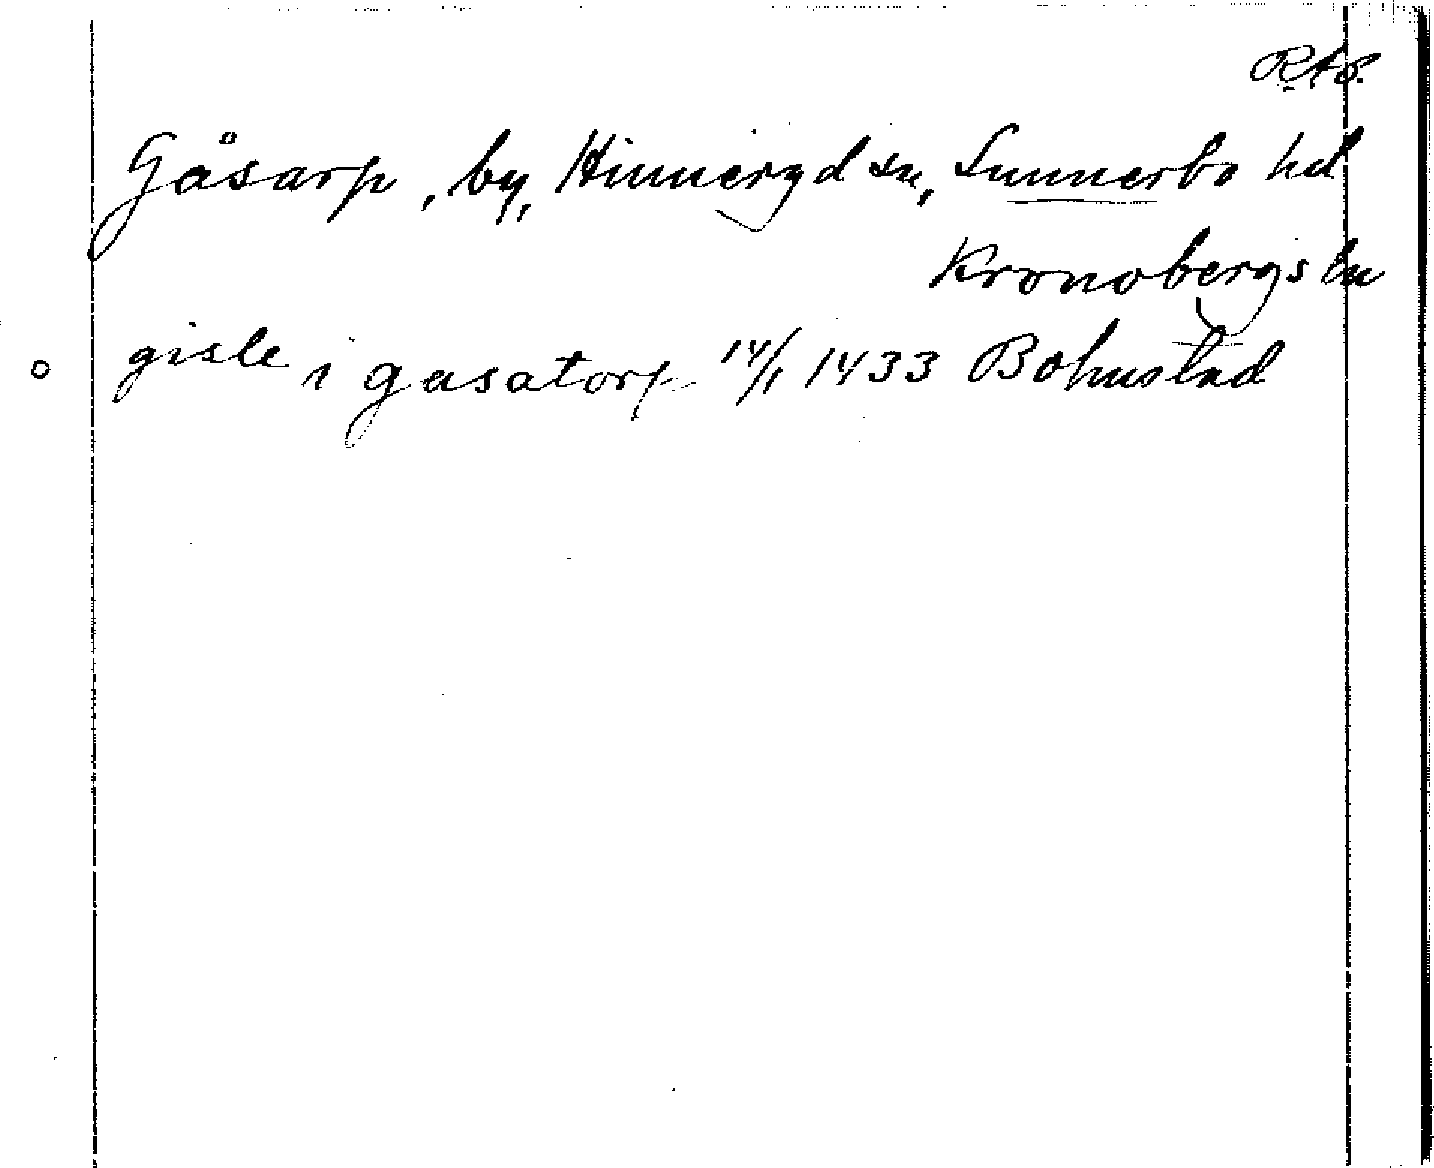 RAp.
Gåsarp, by, Hinneryd sn, Sunnerbo hd
Kronobergs ln
gisle i gasatorp 14/1 1433 Bohnstad